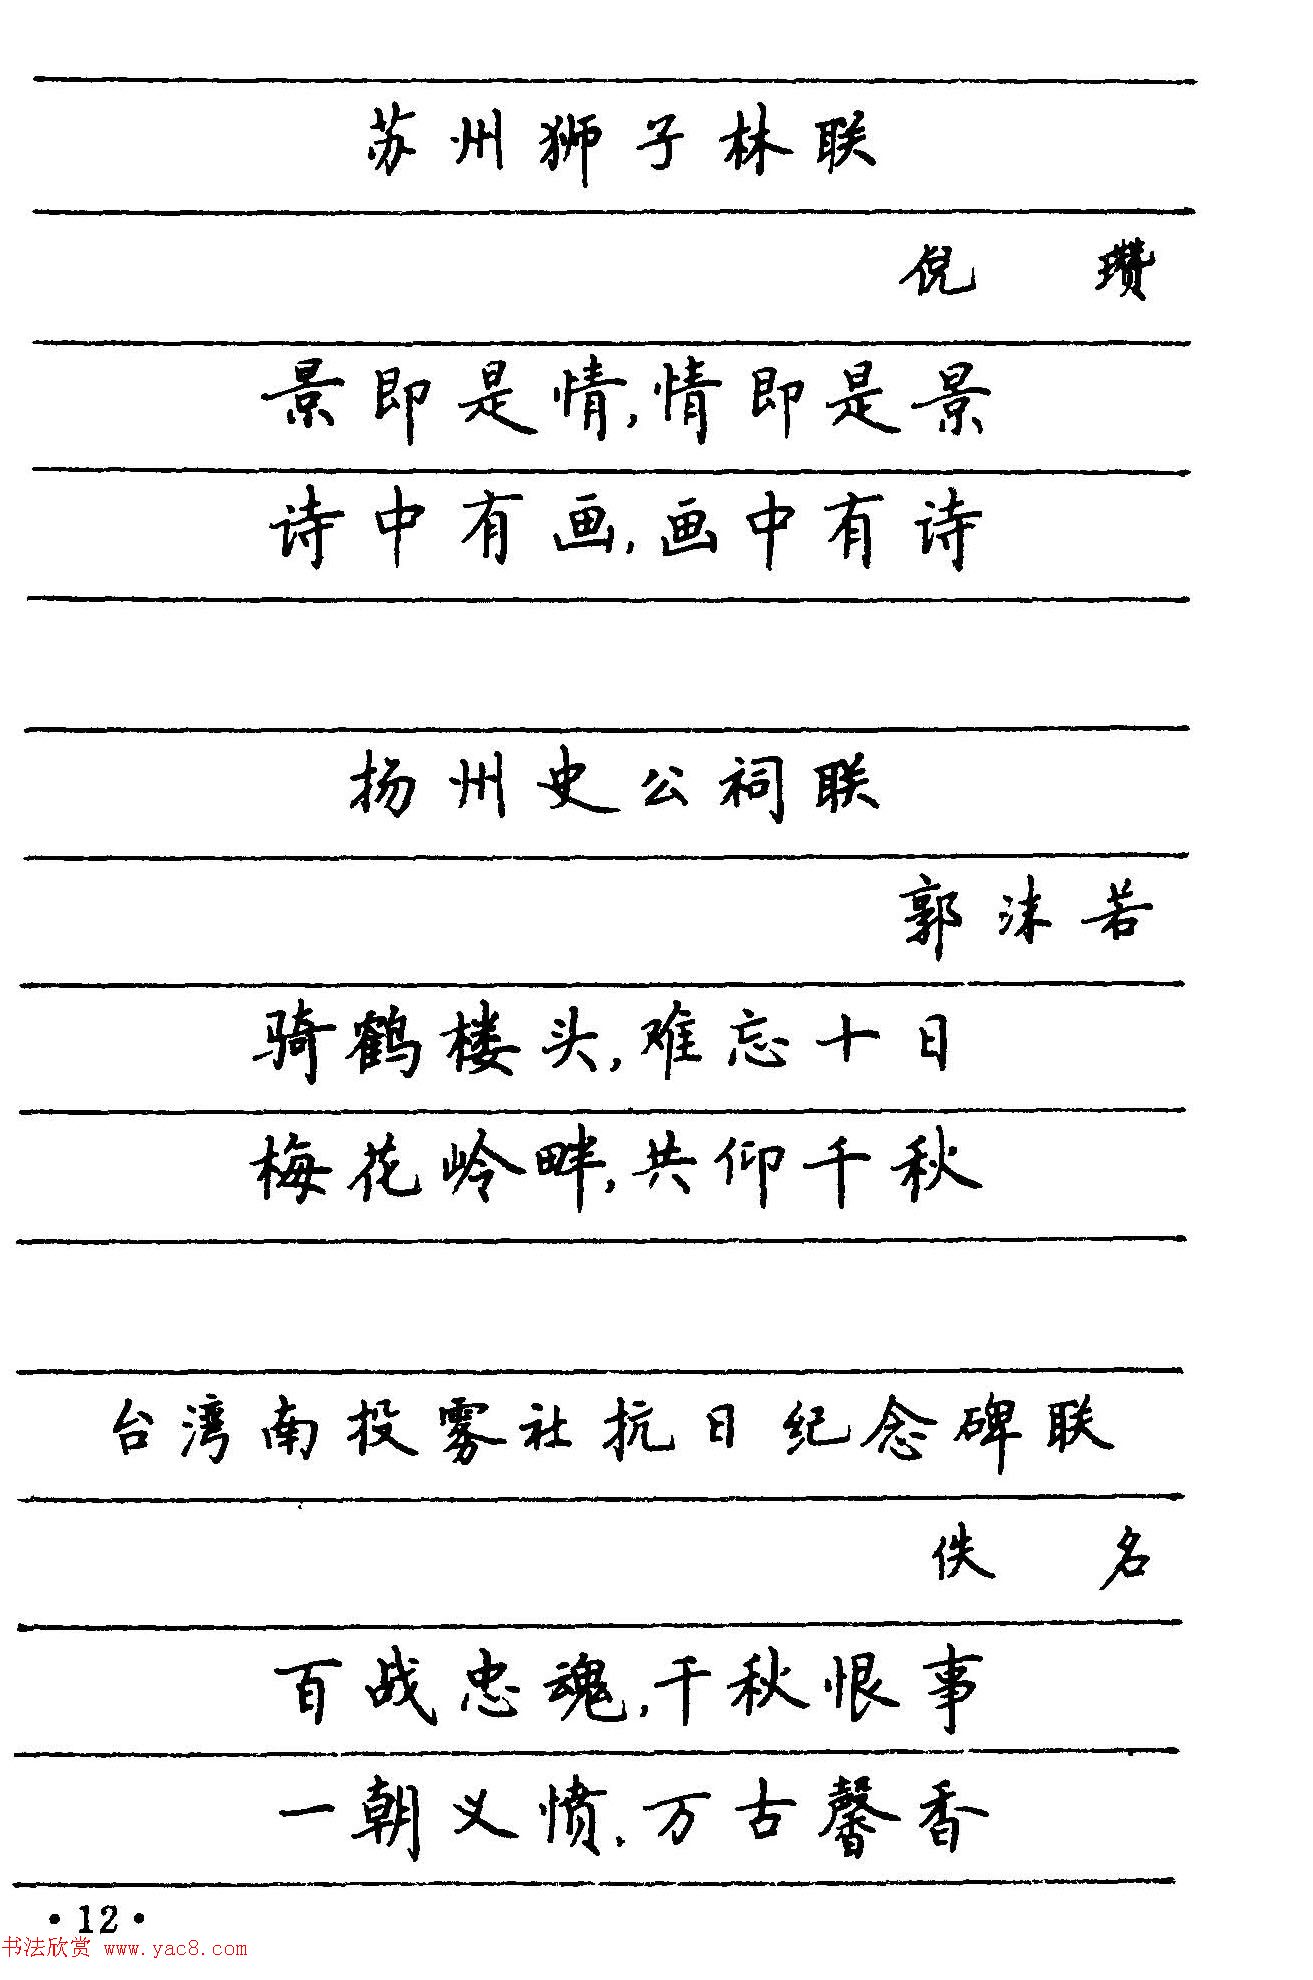 苏州狮子林联
倪瓒
景即是情,情即是景
诗中有画,画中有诗
扬州史公祠联
郭沫若
骑鹤楼头,难忘十日
梅花岭畔,共仰千秋
台湾南投雾社抗日纪念碑联
佚名
百战忠魂,千秋恨事
一朝义愤,万古馨香
·12·
书法欣赏 www.yac8.com